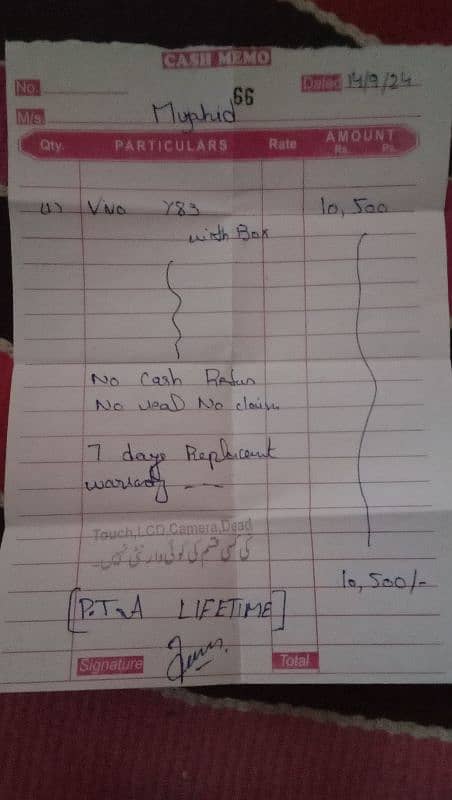 CASH MEMO
No. 66 Dated 14/9/24
M/s. Mujahid
Qty. PARTICULARS Rate AMOUNT
Rs. Ps.
(1) Vivo Y83 10,500
with Box
No Cash Refun
No No claim
7 days Replacent
warranty
Touch,LCD,Camera,Dead
کی کسی قسم کی کوئی وارنٹی نہیں۔
10,500/-
[P.T.A LIFETIME]
Signature Total